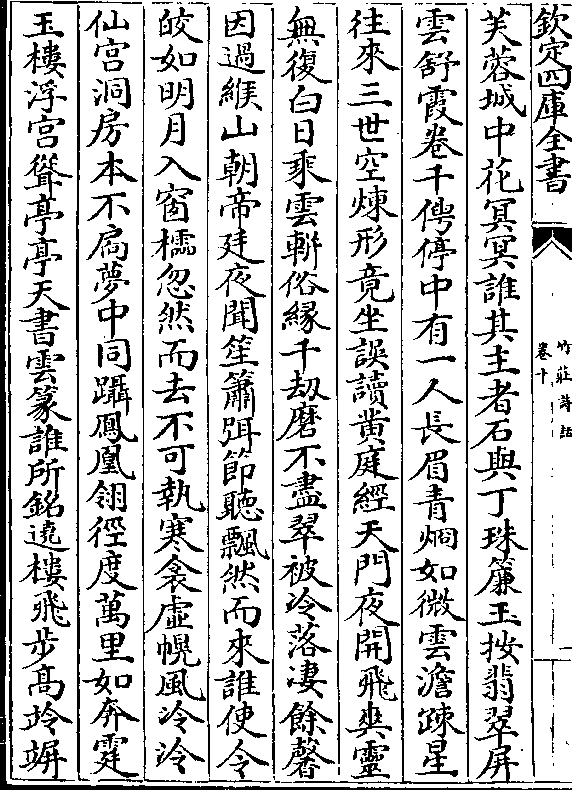 欽定四庫全書
竹莊詩話
卷十
芙蓉城中花冥冥誰其主者石與丁珠簾玉按翡翠屏
雲舒霞卷千俜停中有一人長眉青烱如微雲澹踈星
往來三世空煉形竟坐誤讀黄庭經天門夜開飛爽靈
無復白日乘雲軿俗縁千刼磨不盡翠被冷落凄餘馨
因過緱山朝帝廷夜聞笙簫弭節聽飄然而來誰使令
皎如明月入窗櫺忽然而去不可執寒衾虛幌風泠泠
仙宫洞房本不扃夢中同躡鳳凰翎徑度萬里如奔霆
玉樓浮宫聳亭亭天書雲篆誰所銘遶樓飛步高竛竮